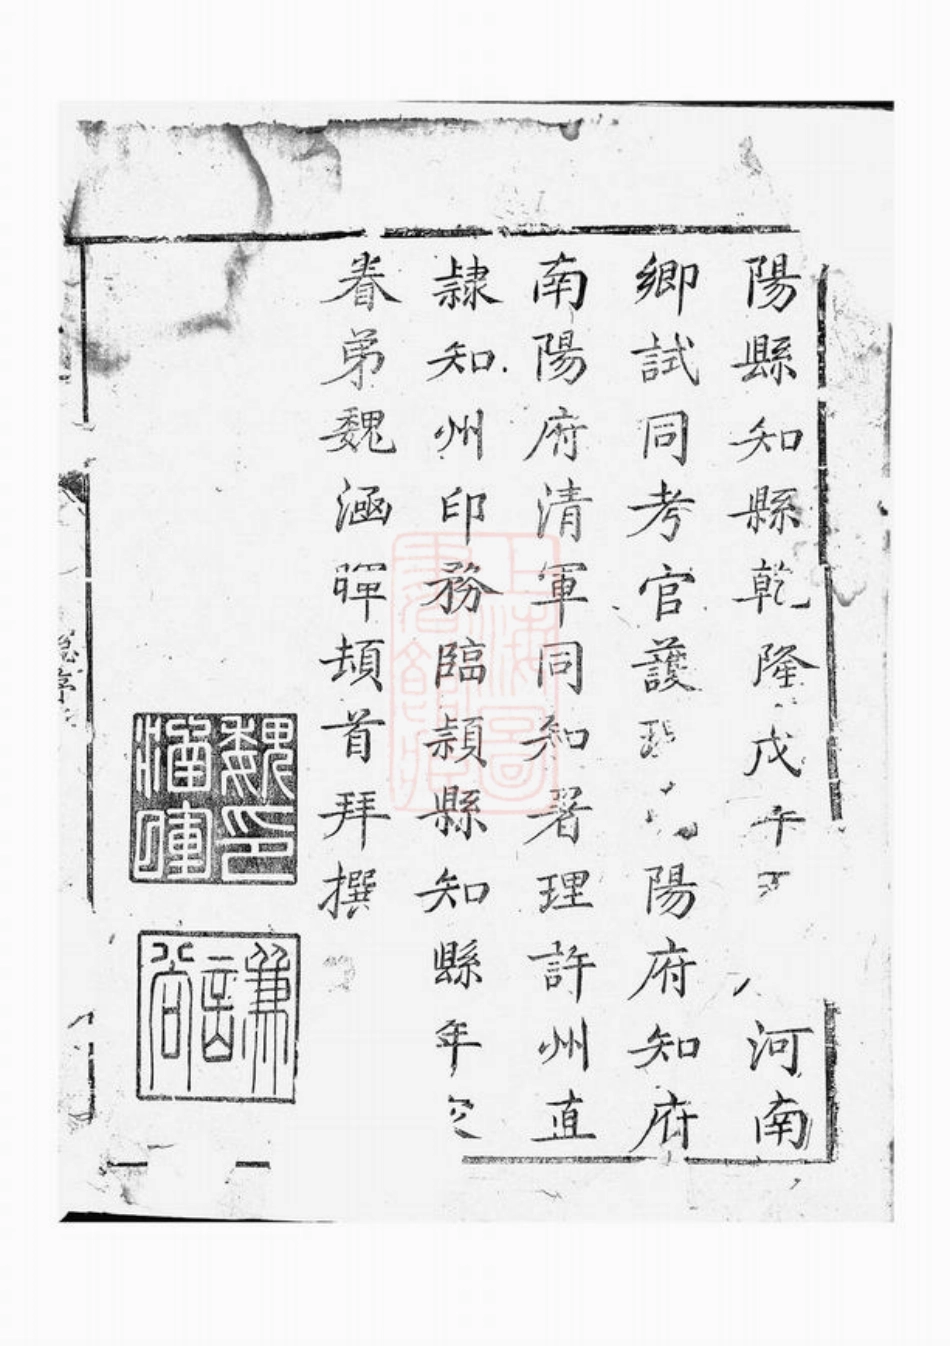 陽縣知縣乾隆戊午 河南
鄉試同考官護 陽府知府
南陽府清軍同知署理許州直
隷知州印務臨潁縣知縣年
眷弟魏涵暉頓首拜撰
魏印涵暉
謙谷
上海圖書館藏